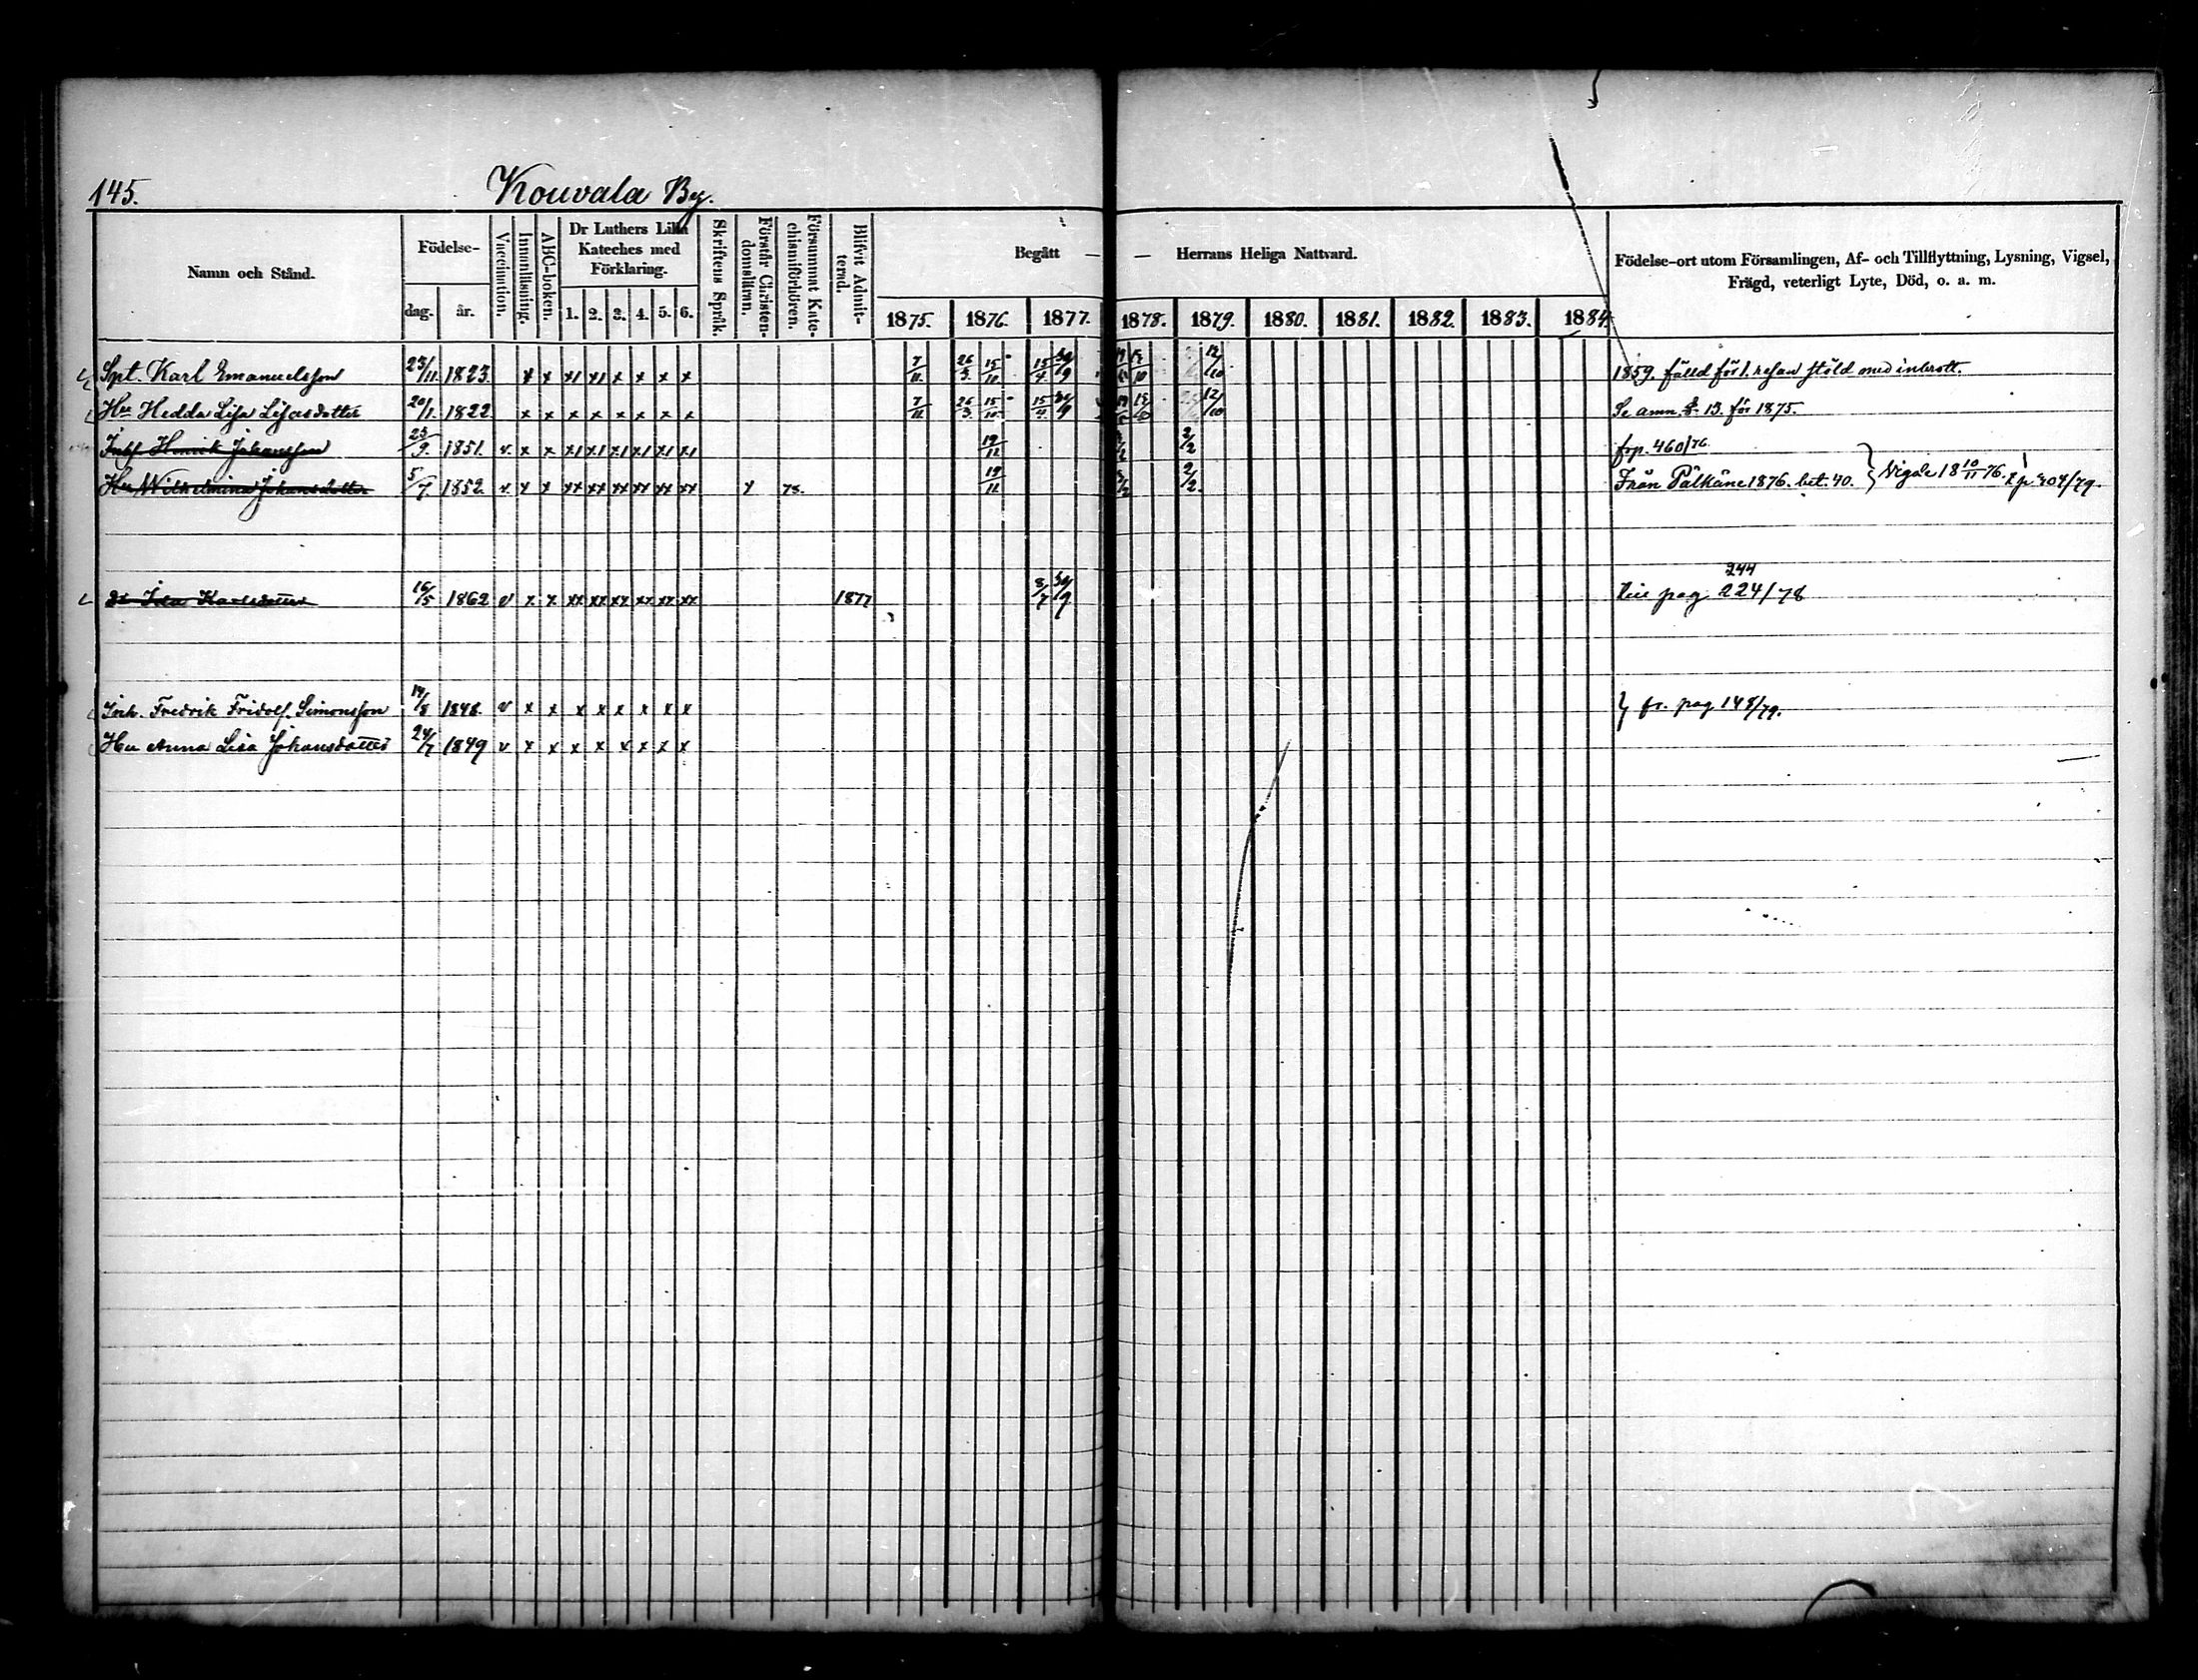 145. Kouvala By.
Namn och Stånd. Födelse- dag. år. Vaccination. Innanläsning. ABC-boken. Dr Luthers Lilla Kateches med Förklaring. 1. 2. 3. 4. 5. 6. Skriftens Språk. Förstår Christendomsläran. Försummat Katechismiförhören. Blifvit Admitterad. Begått — — Herrans Heliga Nattvard. Födelse-ort utom Församlingen, Af- och Tillflyttning, Lysning, Vigsel, Frägd, veterligt Lyte, Död, o. a. m.
1875. 1876. 1877. 1878. 1879. 1880. 1881. 1882. 1883. 1884.
Spt. Karl Emanuelsson 23/11. 1823. x x x1 x1 x x x x 7/11. 26/3. 15/10. 15/4. 30/9 12/10 1859. fälld för 1. resan stöld med inbrott.
Hu Hedda Lisa Lisasdotter 20/1. 1822. x x x x x x x x 7/11 26/3. 15/10. 15/4. 30/9 12/10 Se anm. 13. för 1875.
Henrik Johansson 23/9. 1851. v. x x x1 x1 x1 x1 x1 x1 19/11 2/2 frp. 460/76
Hu Wilhelmina Johansdotter 5/7. 1852. v. x x xx xx xx xx xx xx x 78. 19/11 2/2. Från Pälkäne 1876. bet. 40. } Vigde 18 10/11 76. 404/79.
dr Ida Karlsdotter 16/5 1862 v x x xx xx xx xx xx xx 1877 8/7 30/9 244
pag 224/78
Inh. Fredrik Fridolf Simonsson 19/8 1848. v x x x x x x x x } fr. pag 148/79.
Hu Anna Lisa Johansdotter 24/7 1849 v x x x x x x x x